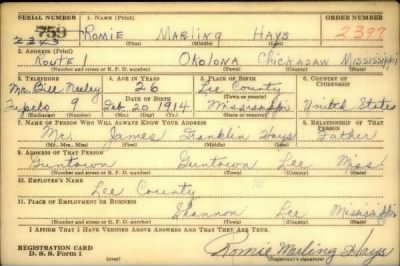 SERIAL NUMBER 1. NAME (Print) ORDER NUMBER
759 Romie Marling Hays 2397
2343 (First) (Middle) (Last)
2. ADDRESS (Print)
Route 1 Okolona Chickasaw Mississippi
(Number and street or R. F. D. number) (Town) (County) (State)
3. TELEPHONE 4. AGE IN YEARS 5. PLACE OF BIRTH 6. COUNTRY OF CITIZENSHIP
Mr. Bill Neeley 26 Lee County
Tupelo 9 DATE OF BIRTH (Town or county)
Feb 20 1914 Mississippi United States
(Exchange) (Number) (Mo.) (Day) (Yr.) (State or country)
7. NAME OF PERSON WHO WILL ALWAYS KNOW YOUR ADDRESS 8. RELATIONSHIP OF THAT PERSON
Mr. James Franklin Hays Father
(Mr., Mrs., Miss) (First) (Middle) (Last)
9. ADDRESS OF THAT PERSON
Guntown Guntown Lee Miss.
(Number and street or R. F. D. number) (Town) (County) (State)
10. EMPLOYER'S NAME
Lee County
11. PLACE OF EMPLOYMENT OR BUSINESS
Shannon Lee Mississippi
(Number and street or R. F. D. number) (Town) (County) (State)
I AFFIRM THAT I HAVE VERIFIED ABOVE ANSWERS AND THAT THEY ARE TRUE.
REGISTRATION CARD
D. S. S. Form 1
Romie Marling Hays
(Registrant's signature)